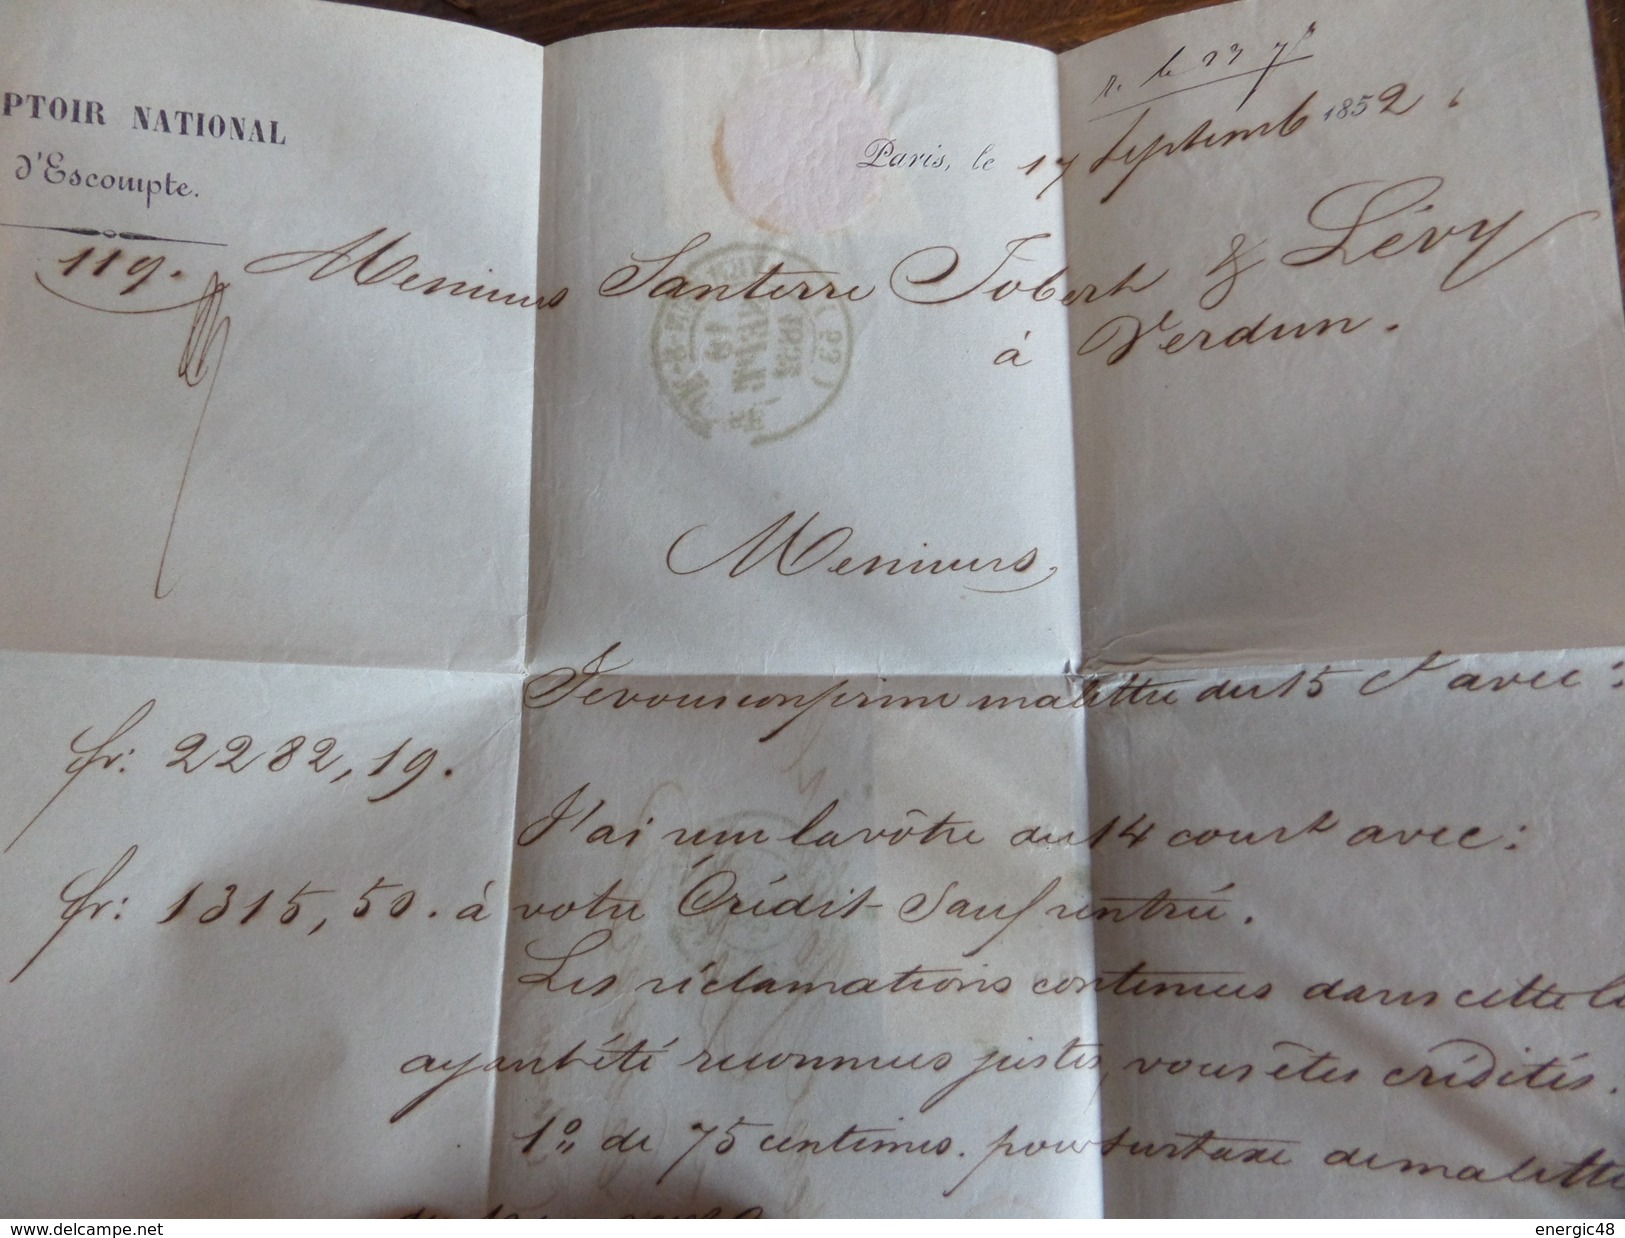 PTOIR NATIONAL
d'Escompte.
r. le 23 7bre
Paris, le 17 Septemb 1852.
119. Messieurs Santerre Jobert & Lévy
à Verdun.
Messieurs,
Je vous confirme ma lettre du 15 ct avec:
fr: 2282,19.
J'ai reçu la vôtre du 14 court avec:
fr: 1315,50. à votre Crédit Sauf rentrée.
Les réclamations contenues dans cette le
ayant été reconnues justes, vous êtes crédités.
1º de 75 centimes. pour surtaxe de ma lettre
delcampe.net
energic48